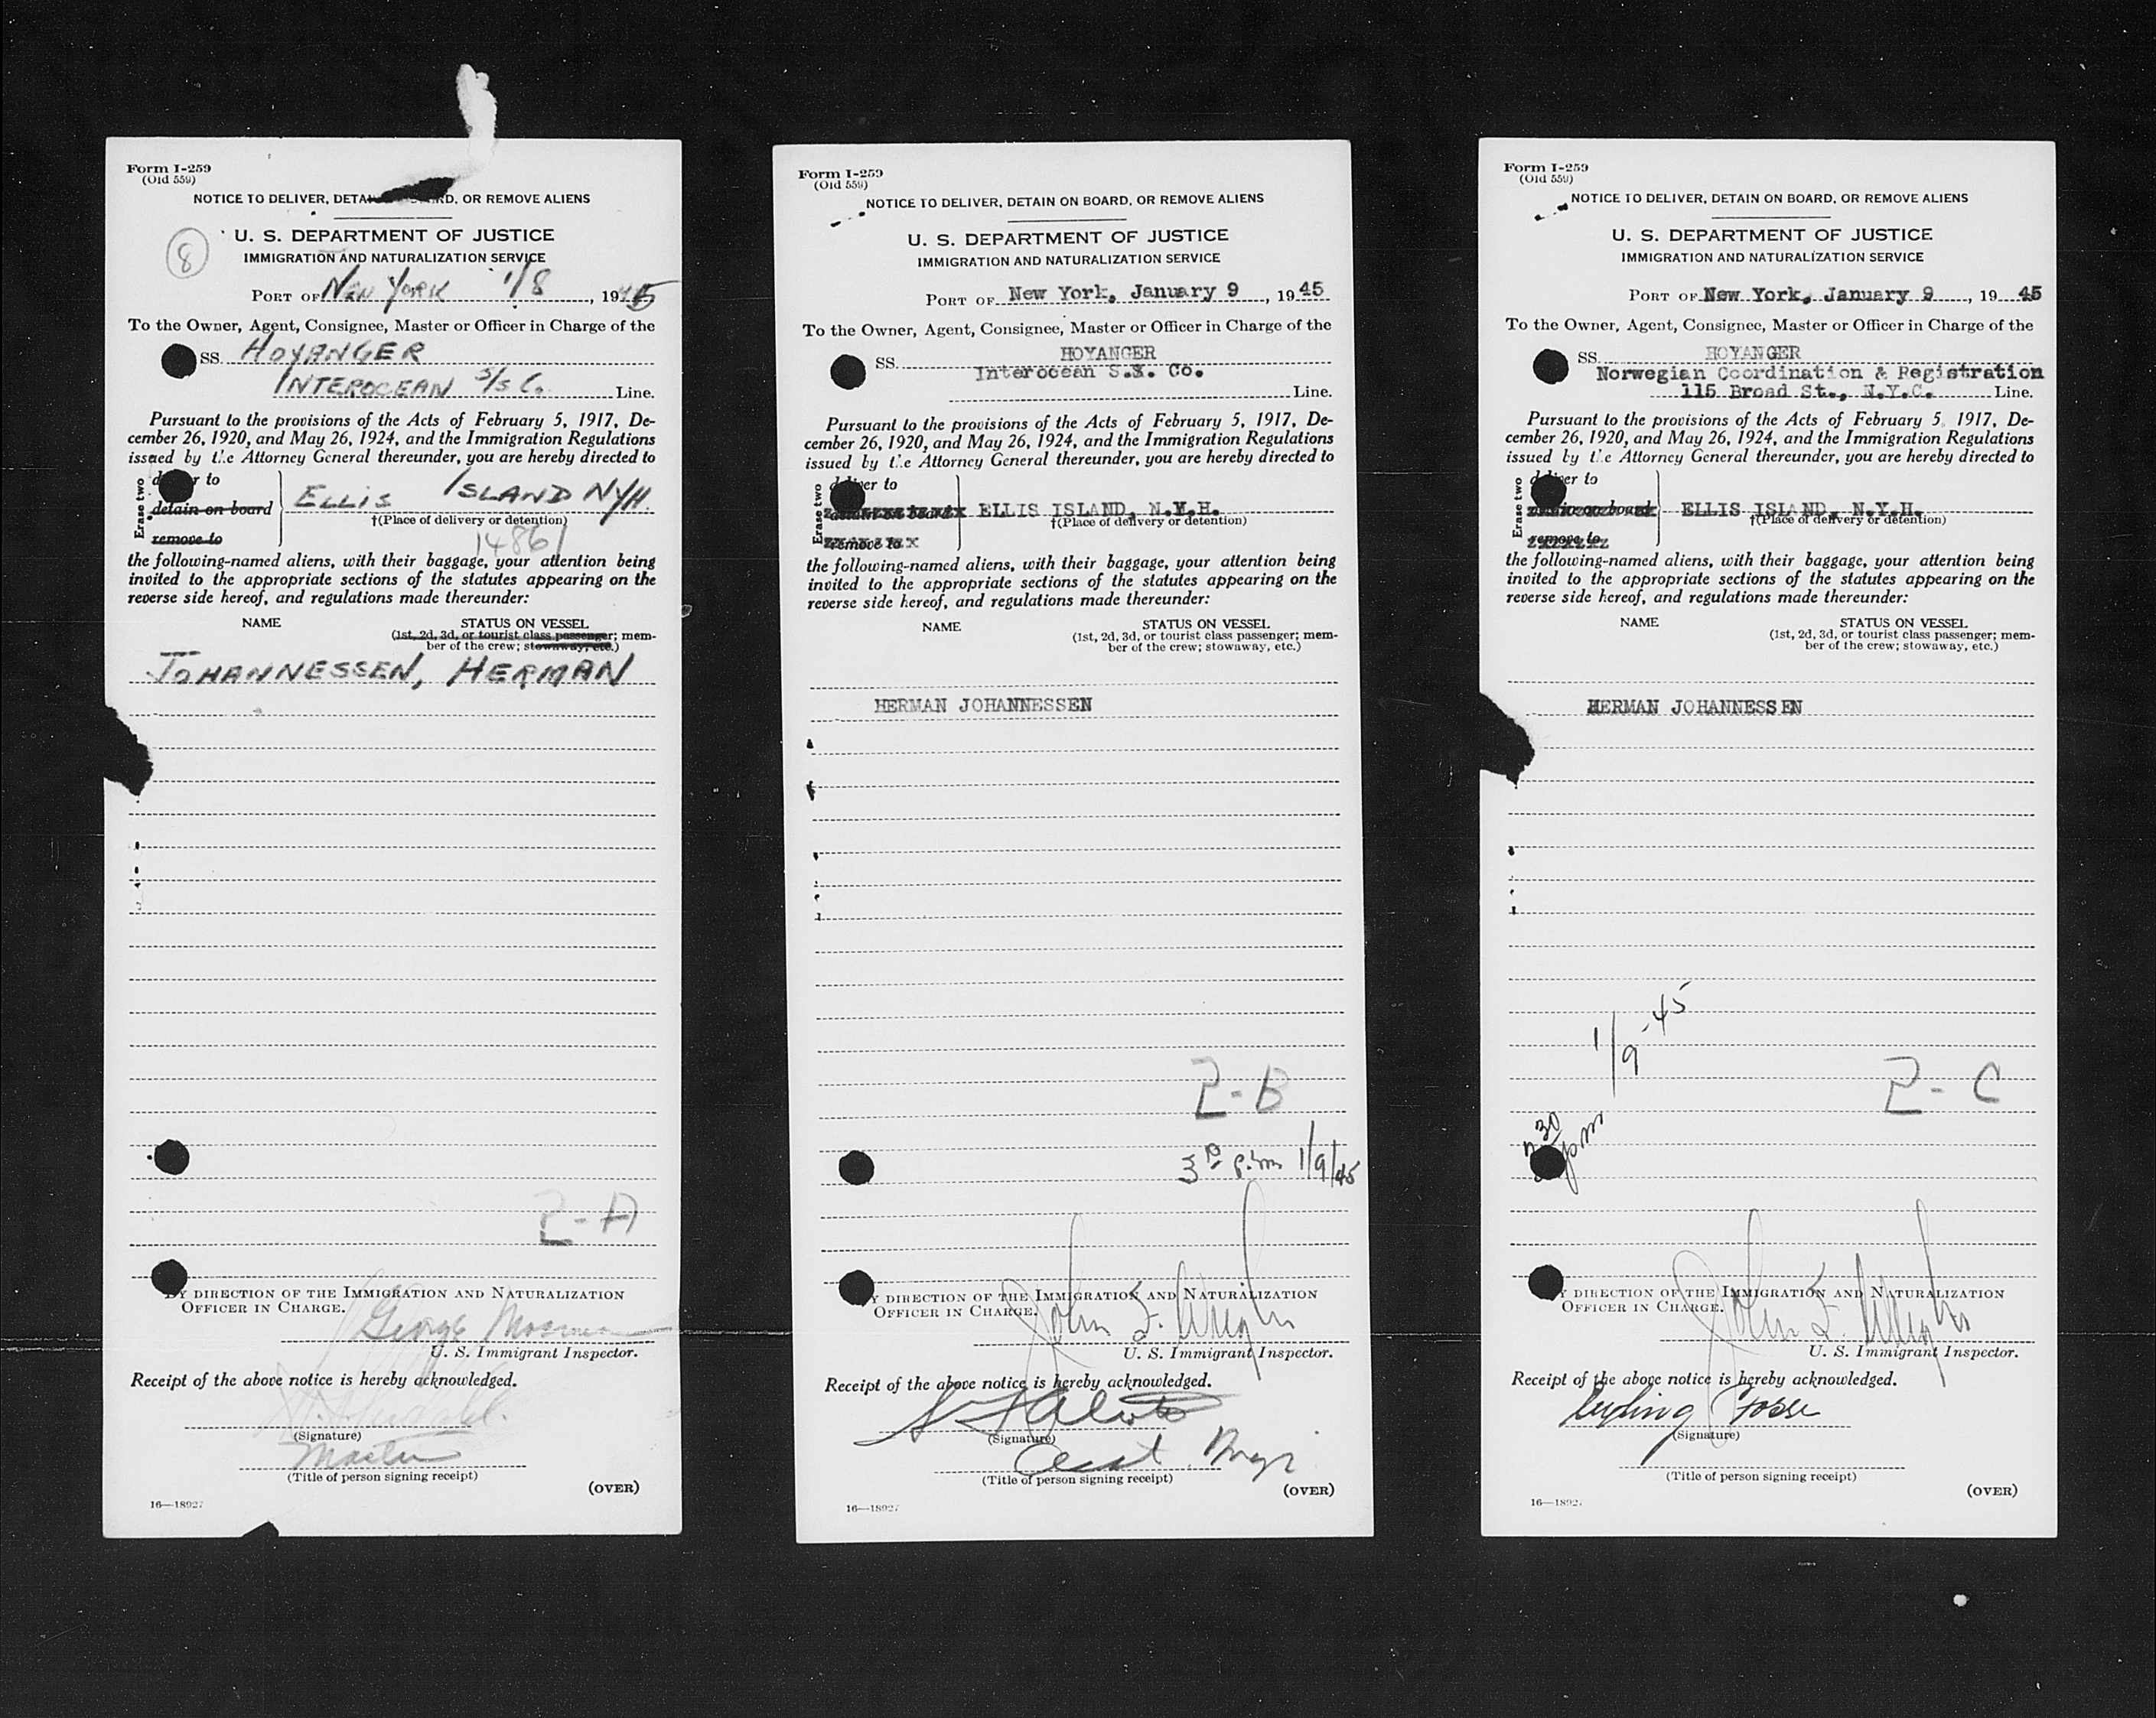 Form I-259
(Old 559)
NOTICE TO DELIVER, DETAIN BOARD, OR REMOVE ALIENS
8
U. S. DEPARTMENT OF JUSTICE
IMMIGRATION AND NATURALIZATION SERVICE
PORT OF NEW YORK 1/8, 1945
To the Owner, Agent, Consignee, Master or Officer in Charge of the
SS. HOYANGER
INTEROCEAN S/S Co. Line.
Pursuant to the provisions of the Acts of February 5, 1917, De-
cember 26, 1920, and May 26, 1924, and the Immigration Regulations
issued by the Attorney General thereunder, you are hereby directed to
Erase two
deliver to
detain on board
remove to
ELLIS ISLAND NYH.
†(Place of delivery or detention)
14861
the following-named aliens, with their baggage, your attention being
invited to the appropriate sections of the statutes appearing on the
reverse side hereof, and regulations made thereunder:
NAME STATUS ON VESSEL
(1st, 2d, 3d, or tourist class passenger; mem-
ber of the crew; stowaway, etc.)
JOHANNESSEN, HERMAN
2-A
BY DIRECTION OF THE IMMIGRATION AND NATURALIZATION
OFFICER IN CHARGE.
George
U. S. Immigrant Inspector.
Receipt of the above notice is hereby acknowledged.
(Signature)
Master
(Title of person signing receipt)
(OVER)
16—18927
Form I-259
(Old 559)
NOTICE TO DELIVER, DETAIN ON BOARD, OR REMOVE ALIENS
U. S. DEPARTMENT OF JUSTICE
IMMIGRATION AND NATURALIZATION SERVICE
PORT OF New York, January 9, 1945
To the Owner, Agent, Consignee, Master or Officer in Charge of the
SS. HOYANGER
Interocean S.S. Co.
Line.
Pursuant to the provisions of the Acts of February 5, 1917, De-
cember 26, 1920, and May 26, 1924, and the Immigration Regulations
issued by the Attorney General thereunder, you are hereby directed to
Erase two
deliver to
detain on board
remove to
ELLIS ISLAND, N.Y.H.
†(Place of delivery or detention)
the following-named aliens, with their baggage, your attention being
invited to the appropriate sections of the statutes appearing on the
reverse side hereof, and regulations made thereunder:
NAME STATUS ON VESSEL
(1st, 2d, 3d, or tourist class passenger; mem-
ber of the crew; stowaway, etc.)
HERMAN JOHANNESSEN
2-B
p.m 1/9/45
BY DIRECTION OF THE IMMIGRATION AND NATURALIZATION
OFFICER IN CHARGE.
John
U. S. Immigrant Inspector.
Receipt of the above notice is hereby acknowledged.
(Signature)
(Title of person signing receipt)
(OVER)
16—18927
Form I-259
(Old 559)
NOTICE TO DELIVER, DETAIN ON BOARD, OR REMOVE ALIENS
U. S. DEPARTMENT OF JUSTICE
IMMIGRATION AND NATURALIZATION SERVICE
PORT OF New York, January 9, 1945
To the Owner, Agent, Consignee, Master or Officer in Charge of the
SS. HOYANGER
Norwegian Coordination & Registration
115 Broad St., N.Y.C. Line.
Pursuant to the provisions of the Acts of February 5, 1917, De-
cember 26, 1920, and May 26, 1924, and the Immigration Regulations
issued by the Attorney General thereunder, you are hereby directed to
Erase two
deliver to
detain on board
remove to
ELLIS ISLAND, N.Y.H.
†(Place of delivery or detention)
the following-named aliens, with their baggage, your attention being
invited to the appropriate sections of the statutes appearing on the
reverse side hereof, and regulations made thereunder:
NAME STATUS ON VESSEL
(1st, 2d, 3d, or tourist class passenger; mem-
ber of the crew; stowaway, etc.)
HERMAN JOHANNESSEN
1/9-45
2-C
30 pm
BY DIRECTION OF THE IMMIGRATION AND NATURALIZATION
OFFICER IN CHARGE.
John
U. S. Immigrant Inspector.
Receipt of the above notice is hereby acknowledged.
Fosse
(Signature)
(Title of person signing receipt)
(OVER)
16—18927